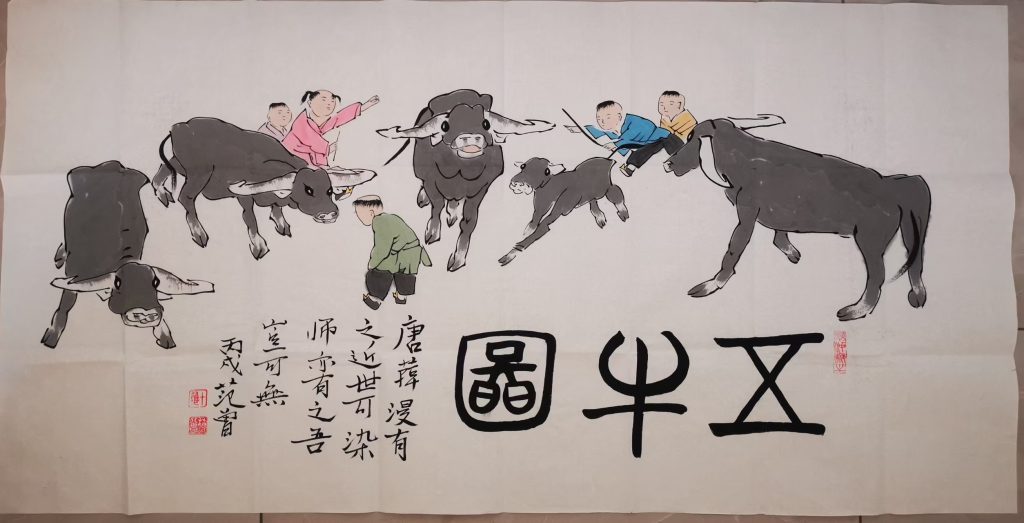 五牛圖
唐韓漫有
之近世可染
师亦有之吾
豈可無
丙戌范曾